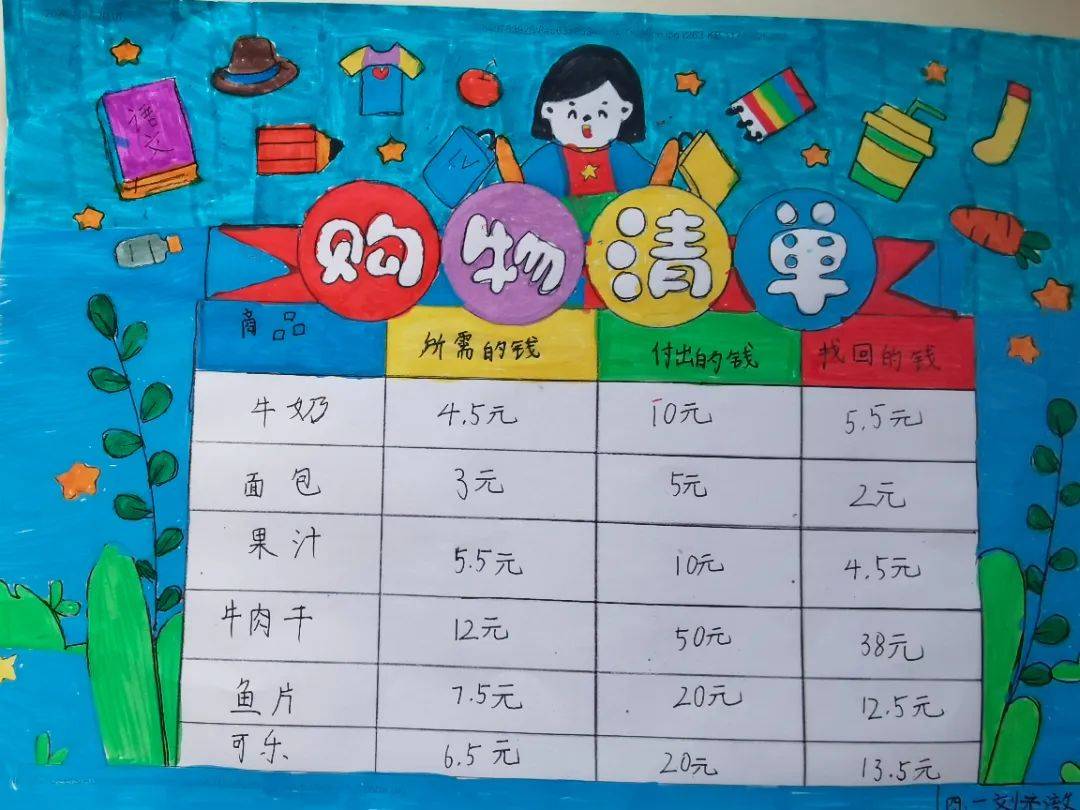 语文
购物清单
商品 所需的钱 付出的钱 找回的钱
牛奶 4.5元 10元 5.5元
面包 3元 5元 2元
果汁 5.5元 10元 4.5元
牛肉干 12元 50元 38元
鱼片 7.5元 20元 12.5元
可乐 6.5元 20元 13.5元